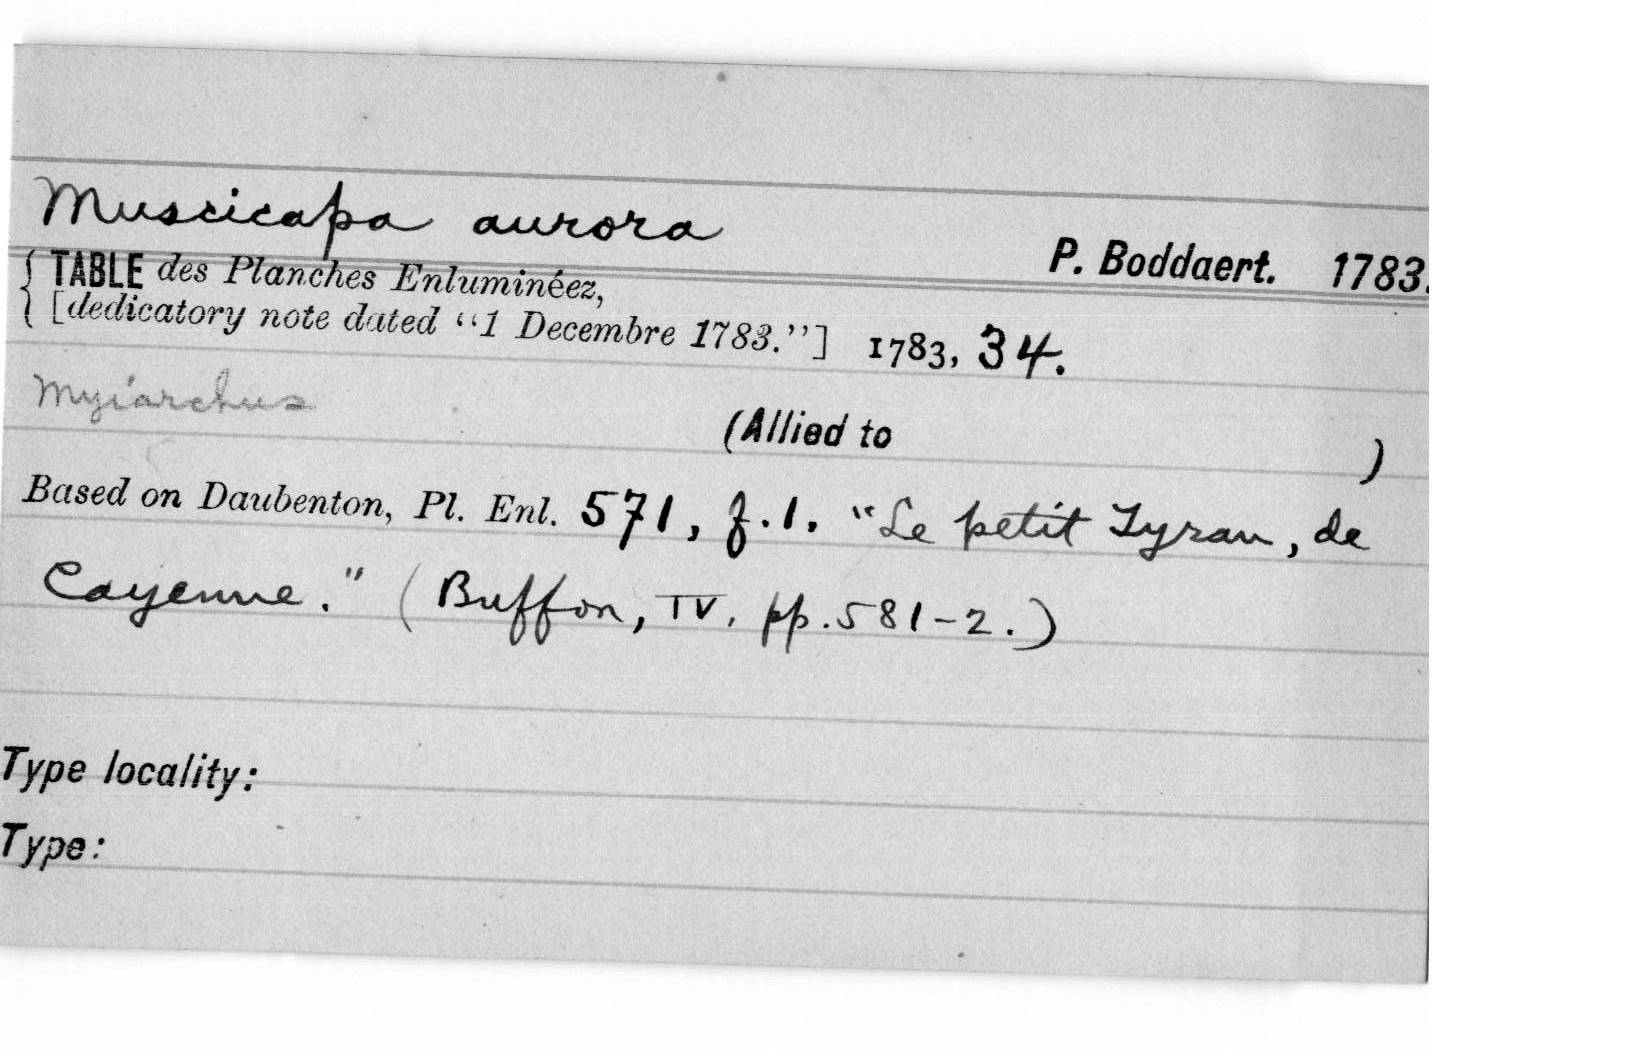 Muscicapa aurora
P. Boddaert. 1783.
{ TABLE des Planches Enluminéez,
[dedicatory note dated “1 Decembre 1783.”] 1783, 34.
Myiarchus
(Allied to )
Based on Daubenton, Pl. Enl. 571, f.1. "Le petit Tyran, de
Cayenne." (Buffon, IV, pp.581-2.)
Type locality:
Type: